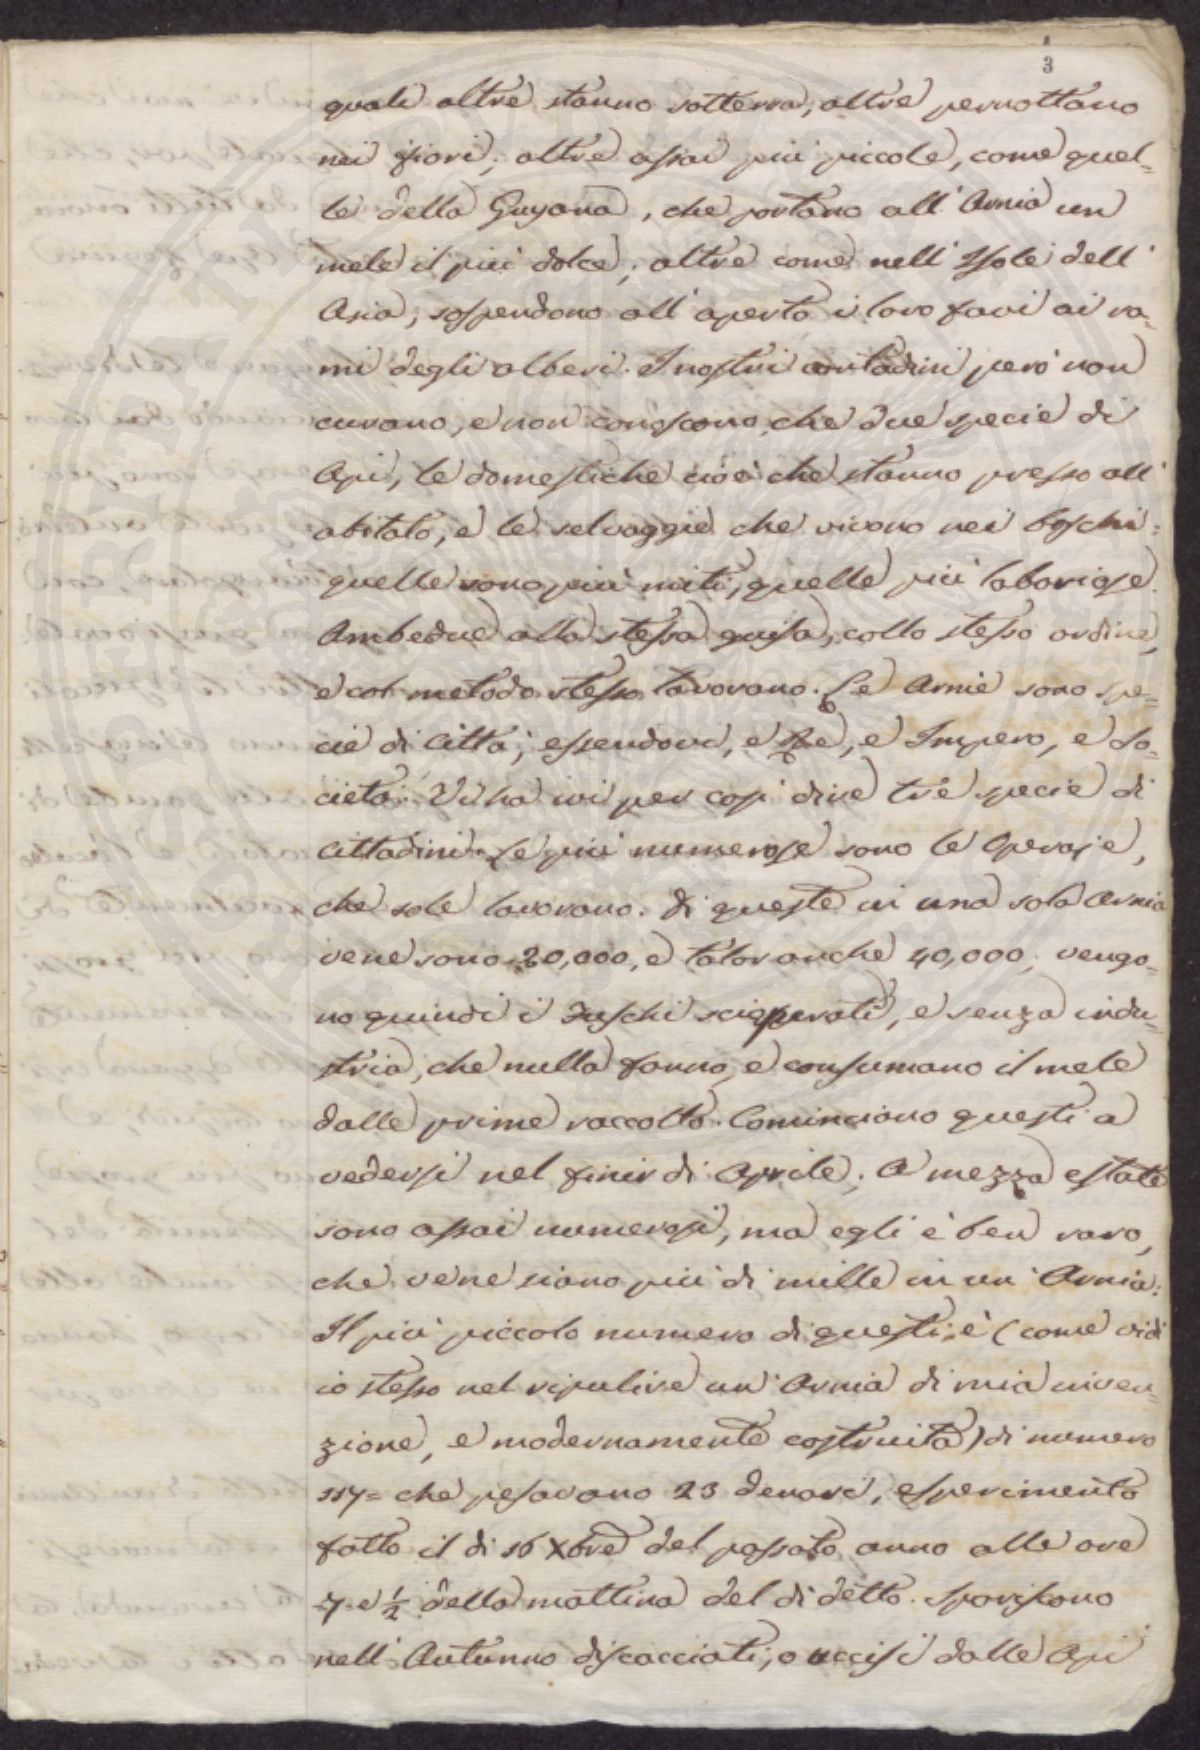 3
quali altre stanno sotterra, altre pernottano
nei fiori; altre assai più piccole, come quel-
le della Guyana, che portano all'Arnia un
mele il più dolce; altre come nell'Isole dell'
Asia, sospendono all'aperto i loro favi ai ra-
mi degli alberi. I nostri contadini però non
curano, e non conoscono, che due specie di
Api, le domestiche cioè che stanno presso all'
abitato, e le selvaggie che vivono nei boschi:
quelle sono più miti, quelle più laboriose.
Ambedue alla stessa guisa, collo stesso ordine,
e col metodo stesso lavorano. Le Arnie sono spe-
cie di Città; essendovi, e Re, e Impero, e So-
cietà. Vi ha ivi per così dire trè specie di
Cittadini. Le più numerose sono le Operaje,
che sole lavorano. di queste in una sola Arnia
vene sono 20,000, e talor anche 40,000; vengo-
no quindi i Fuschi scioperati, e senza indu-
stria, che nulla fanno, e consumano il mele
dalle prime raccolto. Cominciano questi a
vedersi nel finir di Aprile; a mezza estate
sono assai numerosi, ma egli è ben raro,
che vene siano più di mille in un'Arnia:
Il più piccolo numero di questi, è (come vidi
io stesso nel ripulire un'Arnia di mia inven-
zione, e modernamente costruita) di numero
117= che pesavano 23 denari, esperimento
fatto il dì 16 Xbre del passato anno alle ore
7 e ½ della mattina del dì detto. Spariscono
nell'Autunno discacciati, o uccisi dalle Api